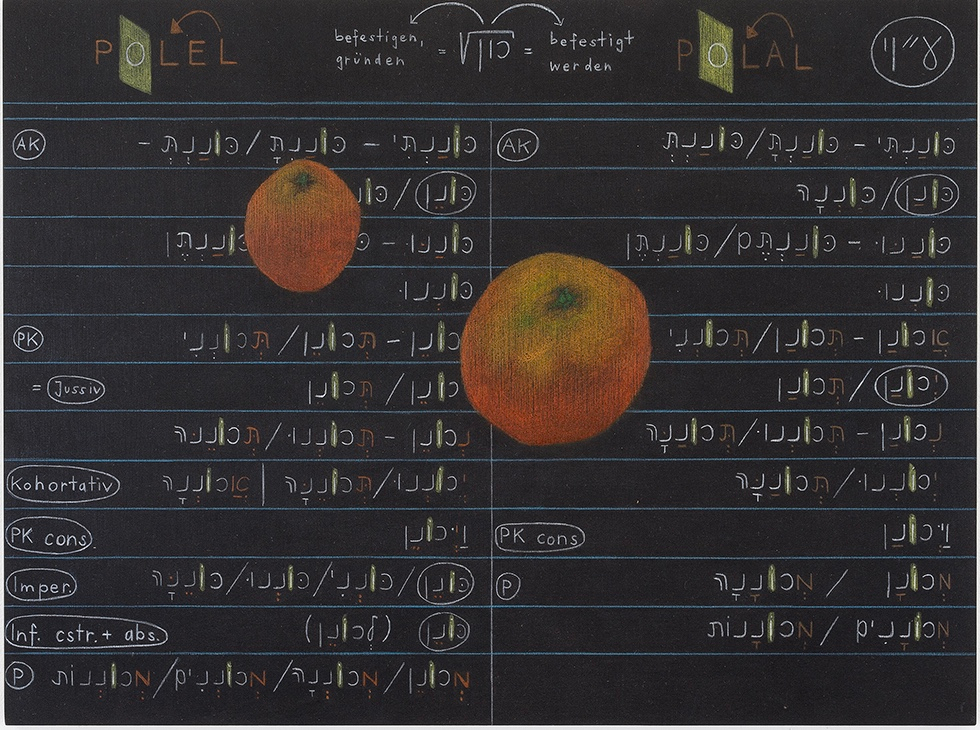 POLEL
befestigen, gründen = √כון = befestigt werden
POLAL
ע״וי
AK כּוֹנַנְתִּי – כּוֹנַנְתָּ/כּוֹנַנְתְּ –
כּוֹנֵן/
כּוֹנַנּוּ –
כּוֹנְנוּ
PK – תְּכוֹנֵן/תְּכוֹנְנִי
= Jussiv / תְּכוֹנֵן
נְכוֹנֵן – תְּכוֹנְנוּ/תְּכוֹנֵנָּה
Kohortativ יְכוֹנְנוּ/תְּכוֹנֵנָּה | אֲכוֹנְנָה
PK cons. וַיְכוֹנֵן
Imper. כּוֹנֵן/כּוֹנְנִי/כּוֹנְנוּ/כּוֹנֵנָּה
Inf. cstr.+ abs. כּוֹנֵן (לְכוֹנֵן)
P מְכוֹנֵן/מְכוֹנְנָה/מְכוֹנְנִים/מְכוֹנְנוֹת
AK כּוֹנַנְתִּי – כּוֹנַנְתָּ/כּוֹנַנְתְּ
כּוֹנַן/כּוֹנְנָה
כּוֹנַנּוּ – כּוֹנַנְתֶּם/כּוֹנַנְתֶּן
כּוֹנְנוּ
אֲכוֹנַן – תְּכוֹנַן/תְּכוֹנְנִי
יְכוֹנַן/תְּכוֹנַן
נְכוֹנַן – תְּכוֹנְנוּ/תְּכוֹנַנָּה
יְכוֹנְנוּ/תְּכוֹנַנָּה
PK cons וַיְכוֹנַן
P מְכוֹנָן / מְכוֹנָנָה
מְכוֹנָנִים / מְכוֹנָנוֹת